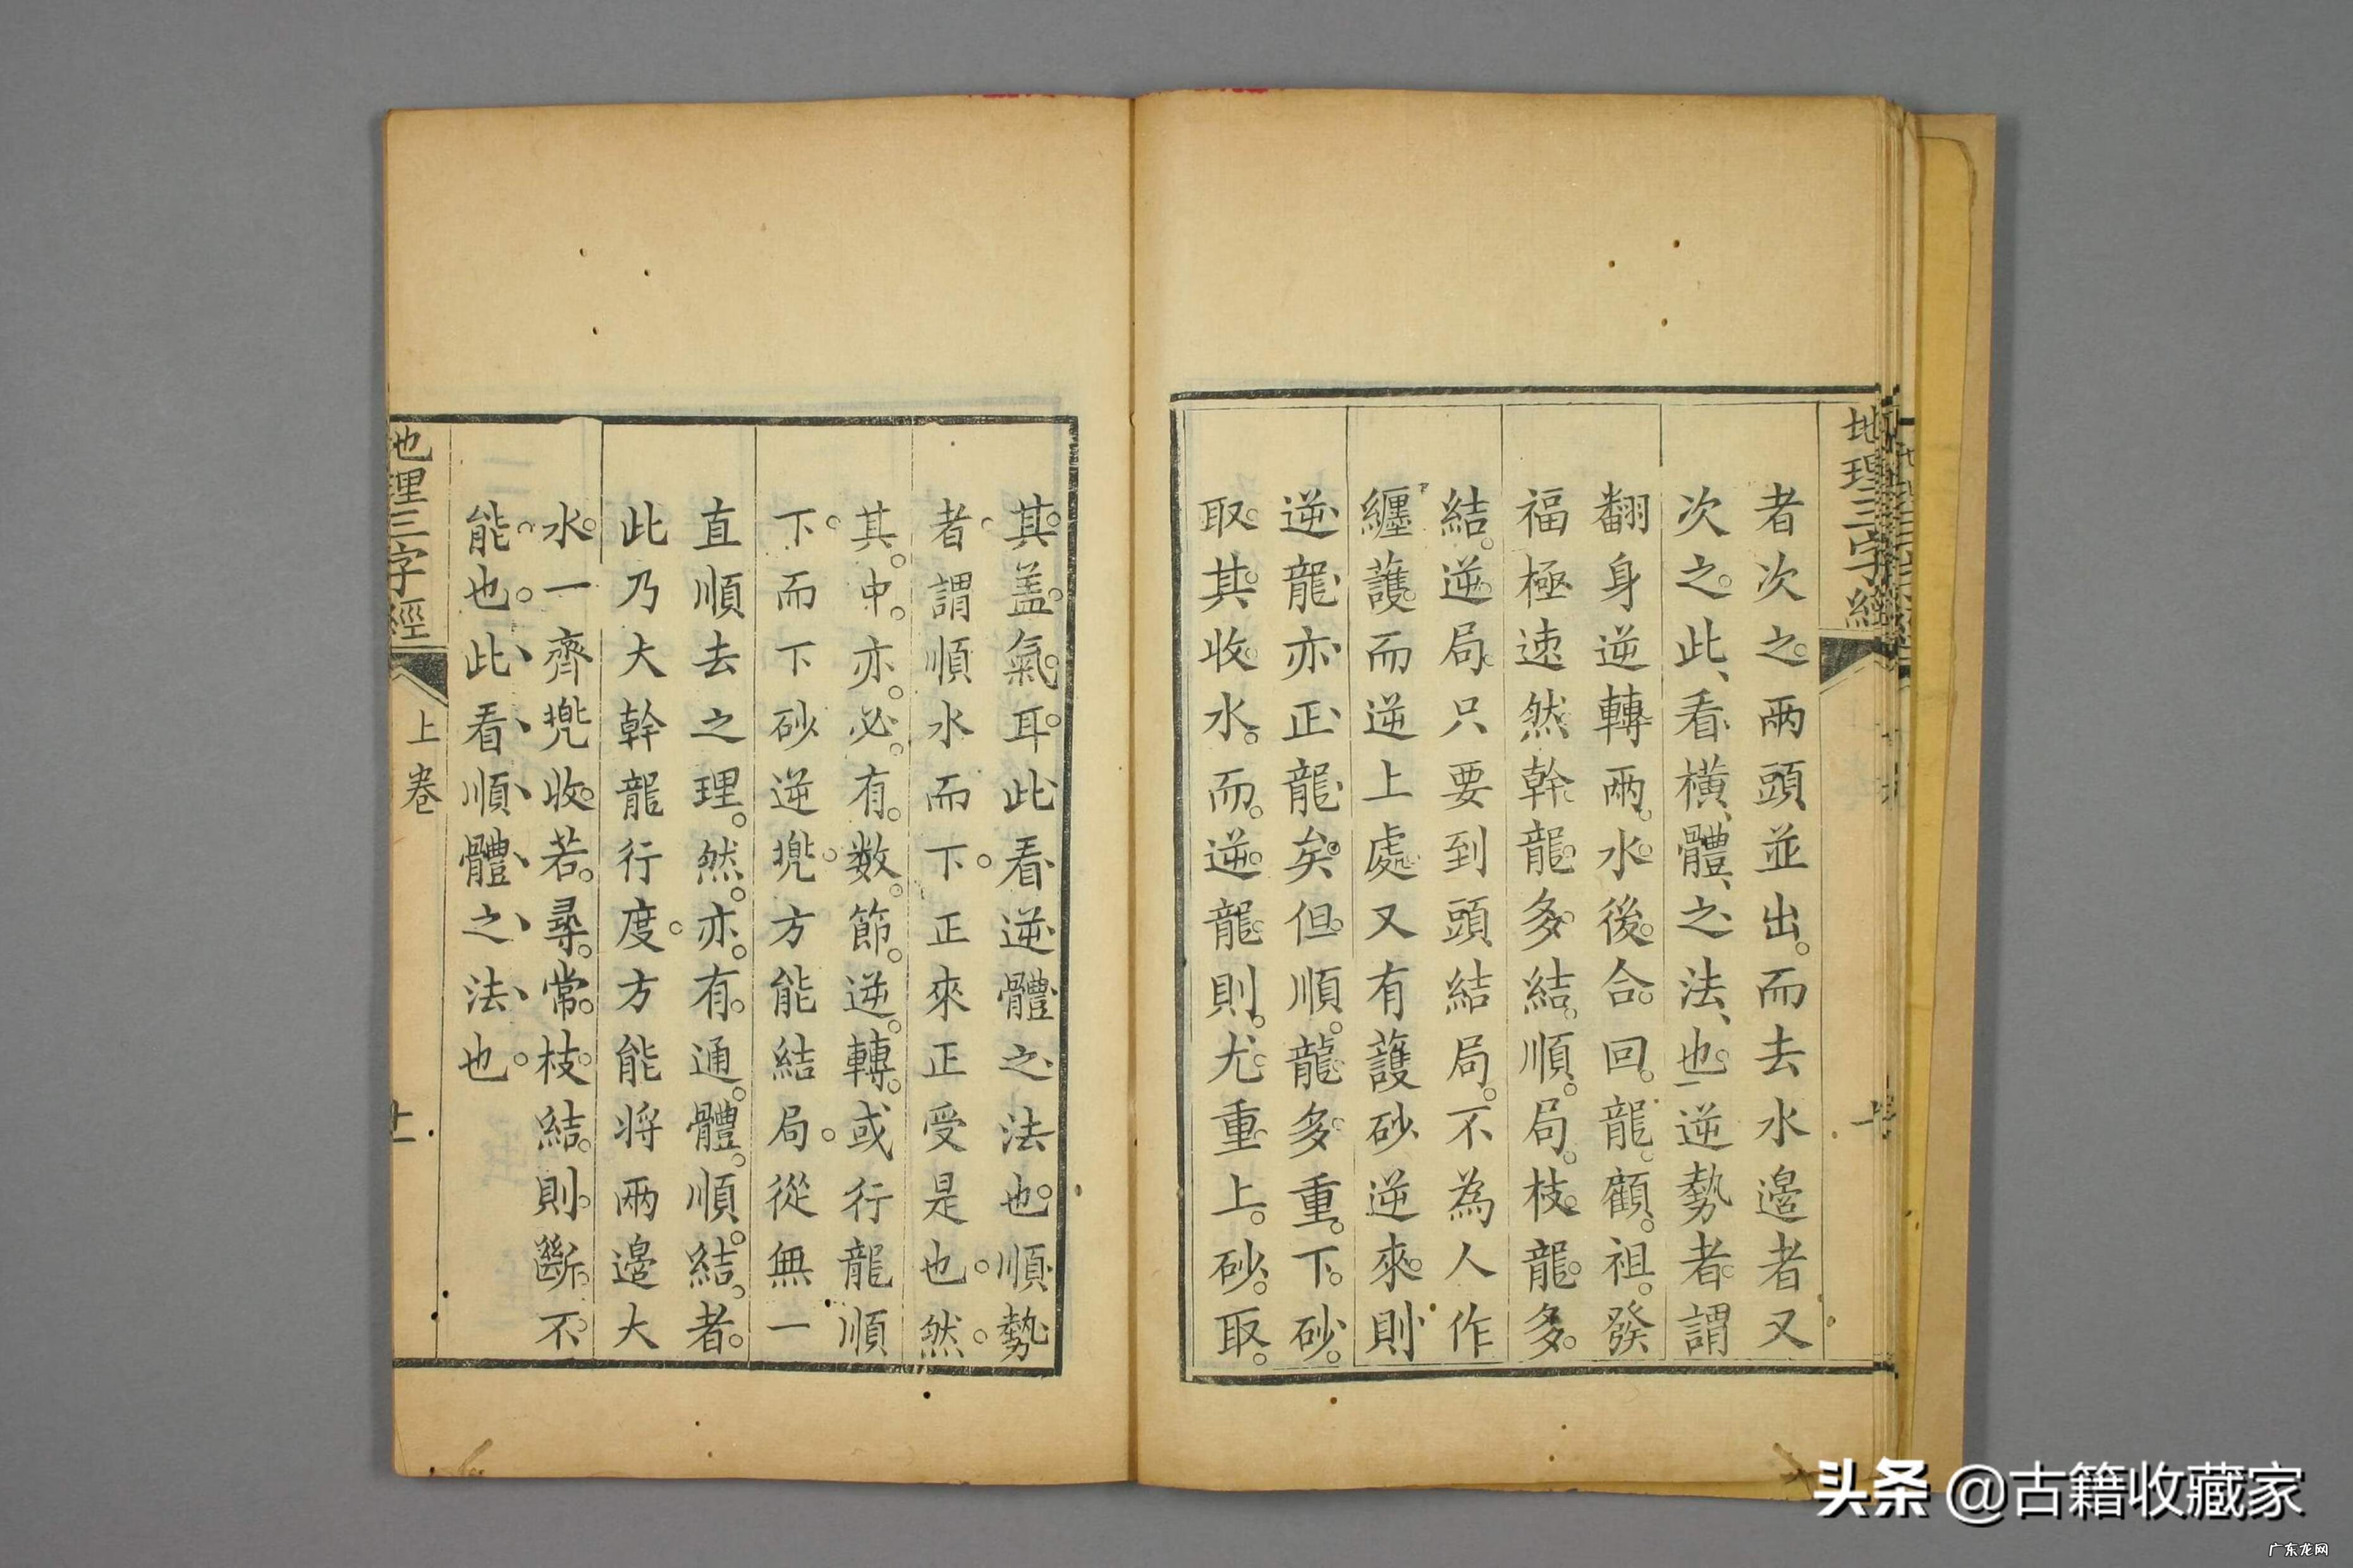 地理三字經
者次之兩頭並出而去水邊者又
次之此看橫體之法也逆勢者謂
翻身逆轉兩水後合回龍顧祖發
福極速然幹龍多結順局枝龍多
結逆局只要到頭結局不為人作
纏護而逆上處又有護砂逆來則
逆龍亦正龍矣但順龍多重下砂
取其收水而逆龍則尤重上砂取
其盖氣耳此看逆體之法也順勢
者謂順水而下正來正受是也然
其中亦必有数節逆轉或行龍順
下而下砂逆兠方能結局從無一
直順去之理然亦有通體順結者
此乃大幹龍行度方能将兩邊大
水一齊兠收若尋常枝結則斷不
能也此看順體之法也
地理三字經
上卷
十一
头条 @古籍收藏家
广东龙网